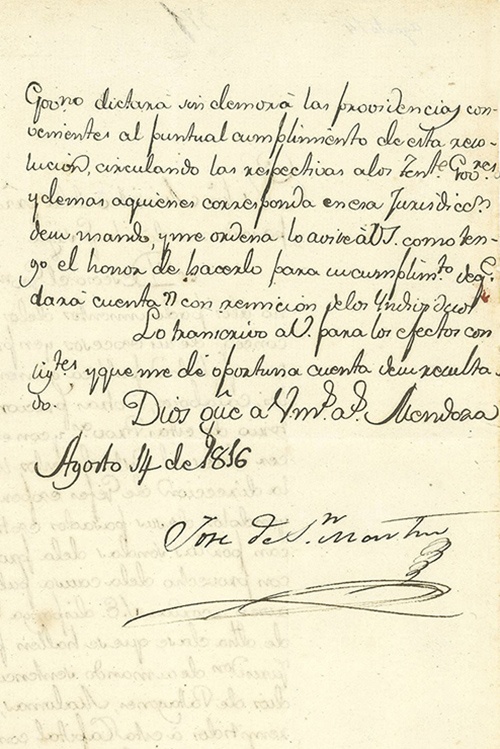 Govno dictará sin demora las providencias con-
venientes al puntual cumplimiento de esta reso-
lucion, circulando las respectivas a los Tente Gores
y demas a quienes corresponda en esa Jurisdiccn
de su mando, y me ordena lo avise à V.S. como ten-
go el honor de hacerlo para su cumplimto de qe
dara cuenta con remision de los Individuos
Lo transcrivo a V. para los efectos con
sigtes y que me dé oportuna cuenta de su resulta-
do.
Dios gūe a V. ms as Mendoza
Agosto 14 de 1816
Jose de Sn Martin